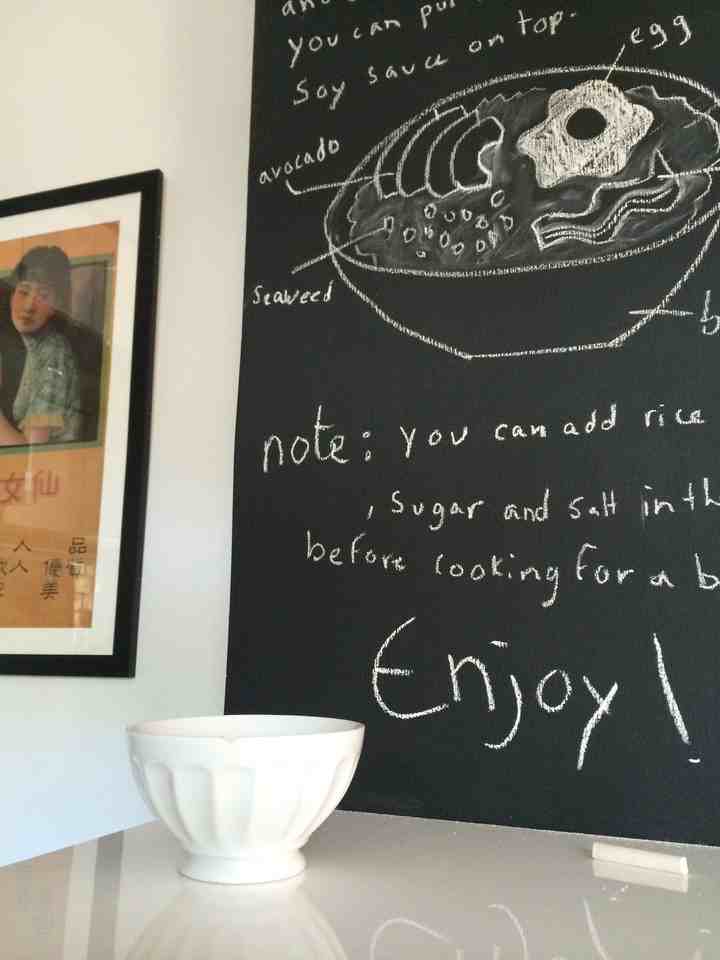 you can put
Soy sauce on top.
egg
avocado
Seaweed
note: you can add rice
, Sugar and salt in th
before cooking for a b
Enjoy!
女仙
人 品
人 優質
美